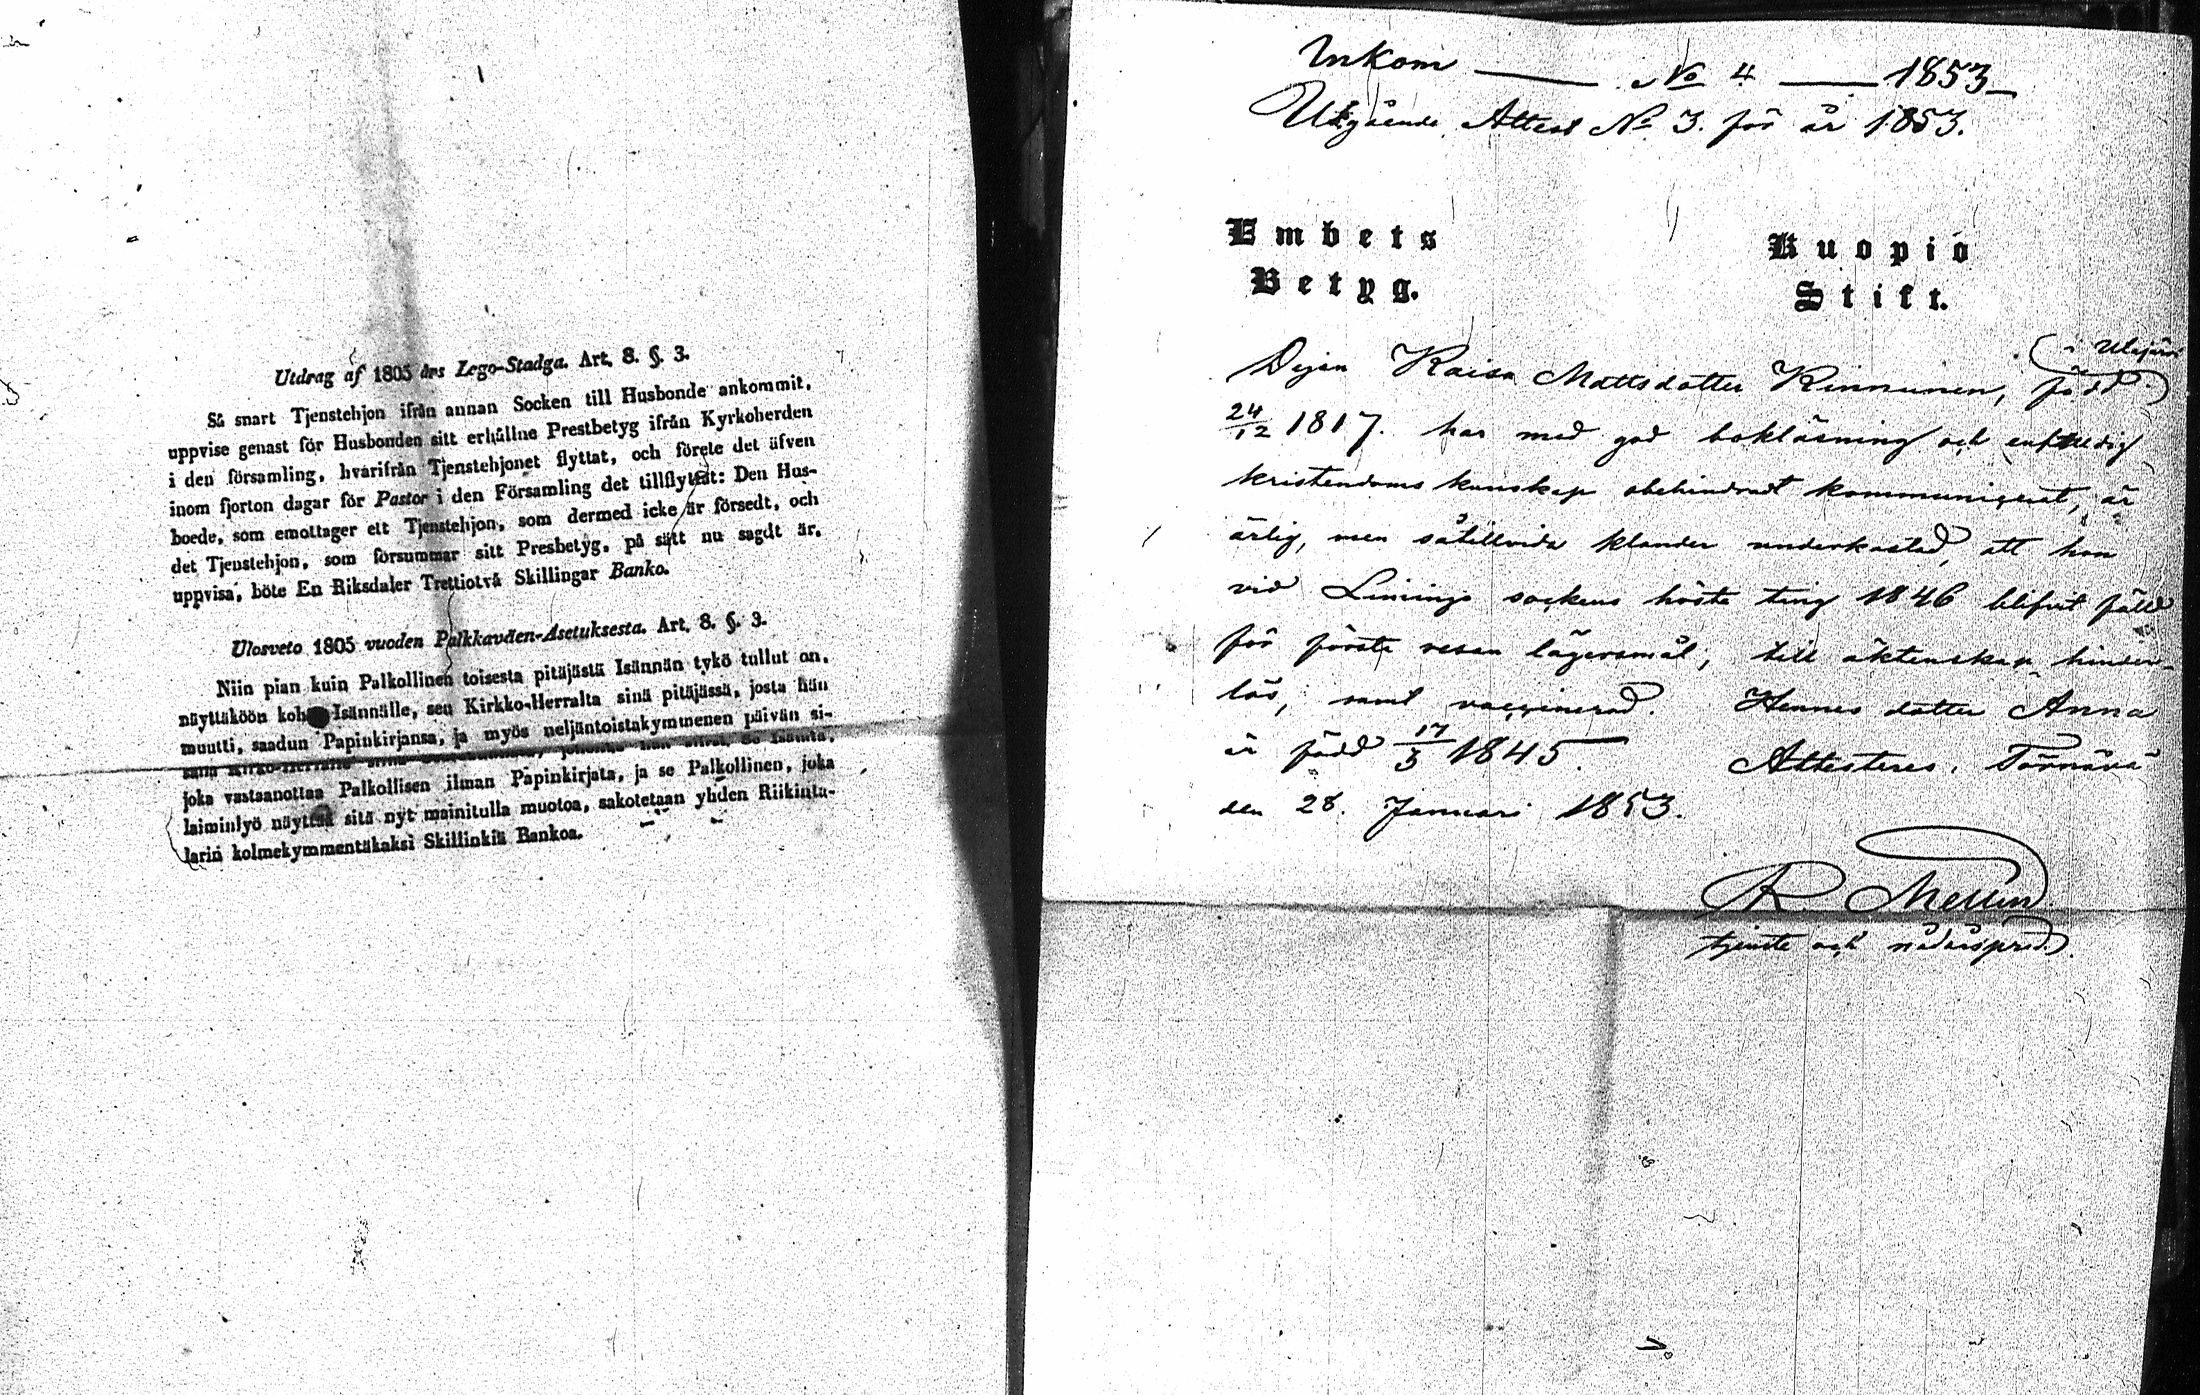 Utdrag af 1805 års Lego-Stadga. Art. 8. §. 3.
Så snart Tjenstehjon ifrån annan Socken till Husbonde ankommit,
uppvise genast för Husbonden sitt erhållne Prestbetyg ifrån Kyrkoherden
i den församling, hvarifrån Tjenstehjonet flyttat, och förete det äfven
inom fjorton dagar för Pastor i den Församling det tillflyttat: Den Hus-
boede, som emottager ett Tjenstehjon, som dermed icke är försedt, och
det Tjenstehjon, som försummar sitt Presbetyg, på sätt nu sagdt är,
uppvisa, böte En Riksdaler Trettiotvå Skillingar Banko.
Ulosveto 1805 vuoden Palkkaväen-Asetuksesta. Art. 8. §. 3.
Niin pian kuin Palkollinen toisesta pitäjästä Isännän tykö tullut on,
näyttäköön Isännälle, sen Kirkko-Herralta sinä pitäjässä, josta hän
muutti, saadun Papinkirjansa, ja myös neljäntoistakymmenen päivän si-
joka vastaanottaa Palkollisen ilman Papinkirjata, ja se Palkollinen, joka
laiminlyö näyttää sitä nyt mainitulla muotoa, sakotetaan yhden Riikinta-
larin kolmekymmentäkaksi Skillinkiä Bankoa.
Inkom No 4 1853
Utgående Attest No 3. för år 1853.
Embets
Betyg.
Kuopio
Stift.
Dejan Kaisa Mattsdotter Kinnunen, född
24/12 1817. har med god bokläsning och enfaldig
kristendoms kunskap obehindradt kommunicerat, är
ärlig, men såtillvida klander underkastad, att hon
vid Limingo sockens höste ting 1846 blifvit fälld
för första resan lägersmål; till äktenskap hinder-
lös, samt vaccinerad. Hennes dotter Anna
är född 17/3 1845. Attesteras. Törnävä
den 28. Januari 1853.
Mellin
tjenste och nådårspred.